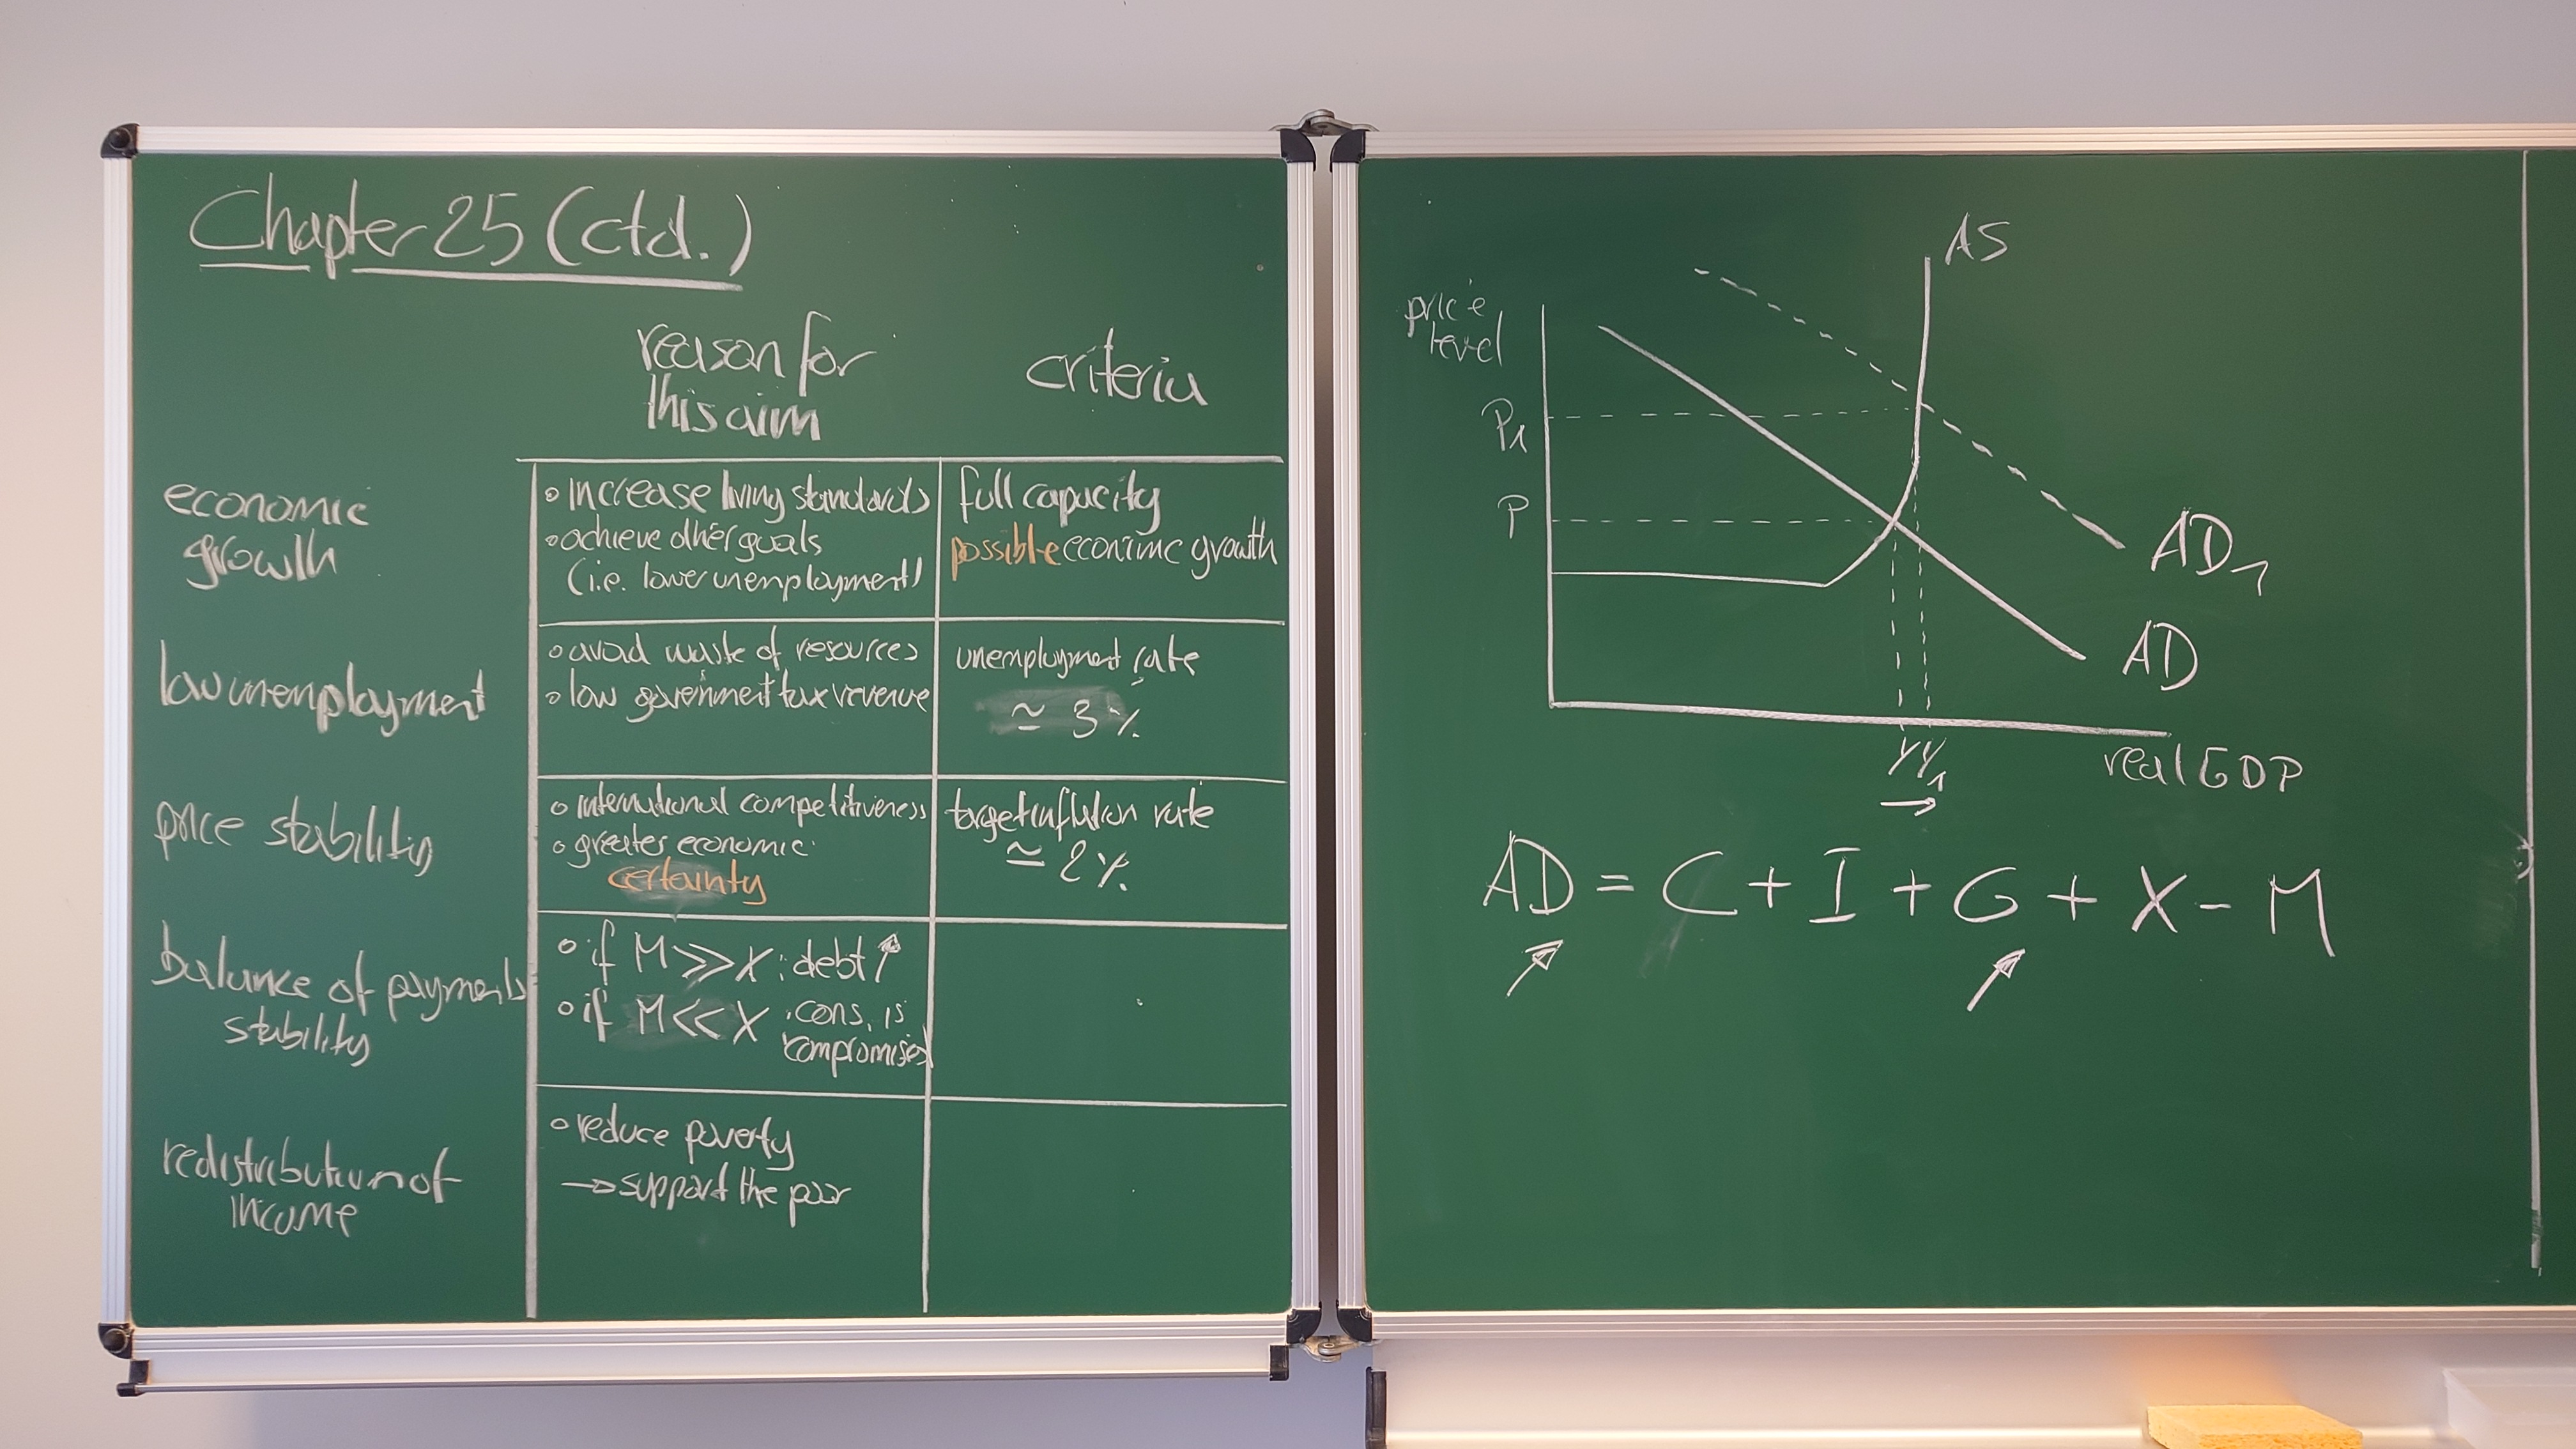 Chapter 25 (ctd.)
reason for
this aim
criteria
economic
growth
◦ increase living standards
◦ achieve other goals
(i.e. lower unemployment)
full capacity
possible econimc growth
low unemployment
◦ avoid waste of resources
◦ low government tax revenue
unemployment rate
≃ 3 %
price stability
◦ international competitiveness
◦ greater economic
certainty
target inflation rate
≃ 2 %
balance of payments
stability
◦ if M >> X : debt ↑
◦ if M << X : cons. is
compromised
redistribution of
income
◦ reduce poverty
→ support the poor
AS
price
level
P₁
P
AD₁
AD
Y Y₁
→
real GDP
AD = C + I + G + X - M
↗ ↗